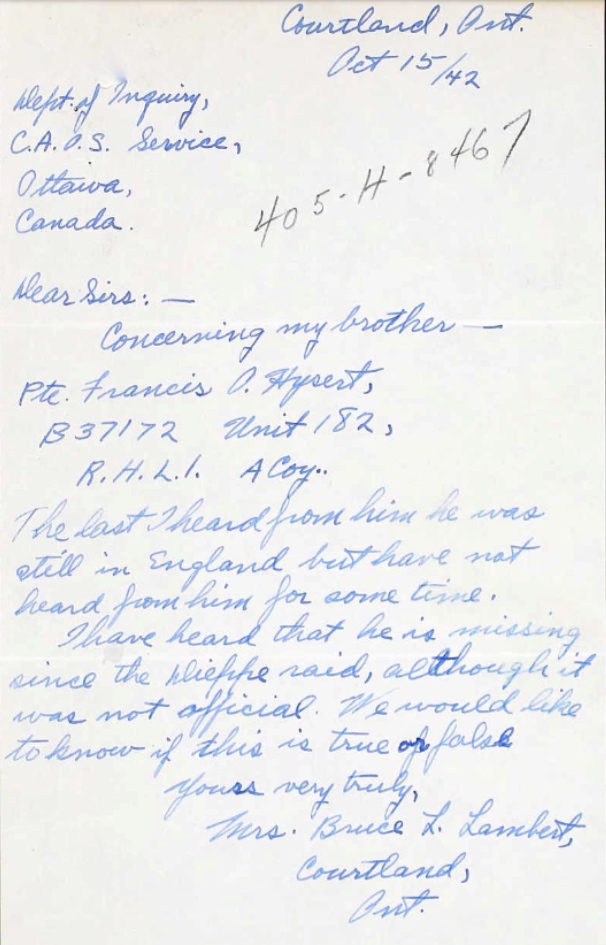 Courtland, Ont.
Oct 15/42
Dept. of Inquiry,
C.A.O.S. Service,
Ottawa,
Canada.
405-H-8467
Dear Sirs: —
Concerning my brother —
Pte. Francis O. Hysert,
B37172 Unit 182,
R.H.L.I. A Coy..
The last I heard from him he was
still in England but have not
heard from him for some time.
I have heard that he is missing
since the Dieppe raid, although it
was not official. We would like
to know if this is true or false
Yours very truly,
Mrs. Bruce L. Lambert,
Courtland,
Ont.